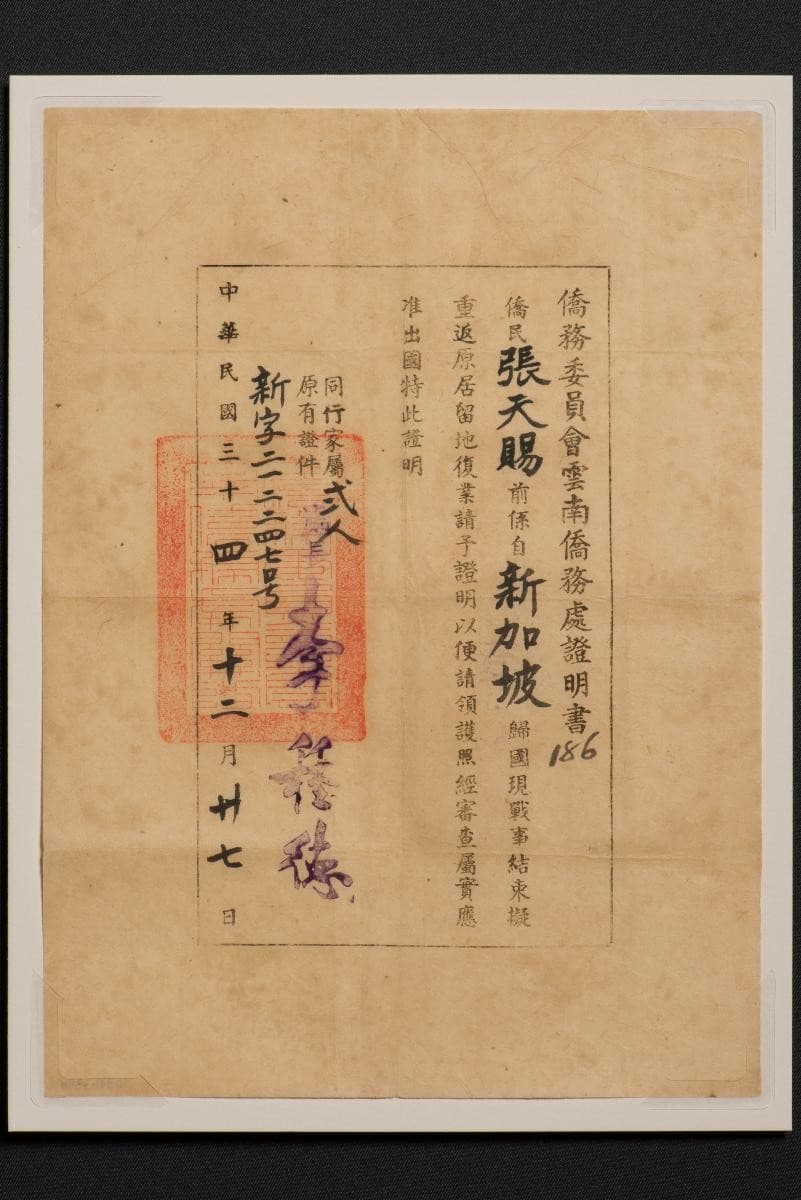 僑務委員會雲南僑務處證明書
186
僑民張天賜前係自新加坡歸國現戰事結束擬
重返原居留地復業請予證明以便請領護照經審查屬實應
准出國特此證明
同行家屬弍人
原有證件
新字二一二二四七号
長
中華民國三十四年十二月廿七日